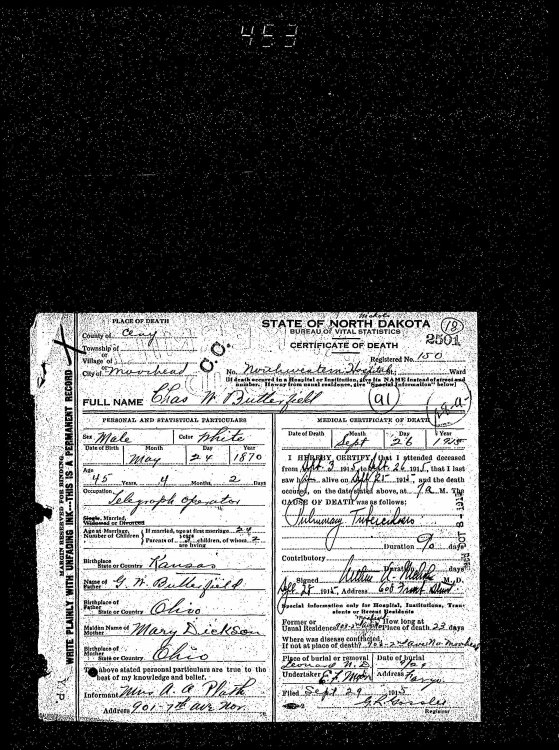 453
PLACE OF DEATH
County of Clay
Township of
or
Village of
or
City of Moorhead
STATE OF NORTH DAKOTA
BUREAU OF VITAL STATISTICS
CERTIFICATE OF DEATH
18
2501
Registered No. 150
No. Northwestern Hospital, Ward
(If death occured in a Hospital or Institution, give its NAME instead of street and
number. If away from usual residence, give "Special Information" below)
C.C.
FULL NAME Chas W. Butterfield
91
MARGIN RESERVED FOR BINDING
WRITE PLAINLY WITH UNFADING INK—THIS IS A PERMANENT RECORD
PERSONAL AND STATISTICAL PARTICULARS
Sex Male Color White
Date of Birth Month Day Year
May 24 1870
Age
45 Years, 4 Months, 2 Days
Occupation
Telegraph Operator
Single, Married,
Widowed or Divorced
Age at Marriage, If married, age at first marriage 24
Number of Children years
Parents of children, of whom 2
are living
Birthplace
State or Country Kansas
Name of
Father G. W. Butterfield
Birthplace of
Father
State or Country Ohio
Maiden Name of
Mother Mary Dickson
Birthplace of
Mother
State or Country Ohio
The above stated personal particulars are true to the
best of my knowledge and belief.
Informant Mrs A. A. Plath
Address 901-7th ave nor.
MEDICAL CERTIFICATE OF DEATH
Date of Death Month Day Year
Sept 26 1915
I HEREBY CERTIFY, that I attended deceased
from Sept 3 1915, to Sept. 26 1915, that I last
saw h alive on Sept 25 1915 and the death
occured, on the date stated above, at M. The
CAUSE OF DEATH was as follows:
Pulmonary Tuberculosis
Duration 90 days
Contributory
Duration days
Signed M. D.
1915, Address 608 Front Street
OCT 8 - 1915
Special information only for Hospital, Institutions, Tran-
sients or Recent Residents
Former or How long at
Usual Residence Place of death 23 days
Where was disease contracted,
If not at place of death?
Place of burial or removal Date of burial
Leonard N.D.
Undertaker E. F. Moore Address Fargo
Filed Sept 29 1915
Registrar